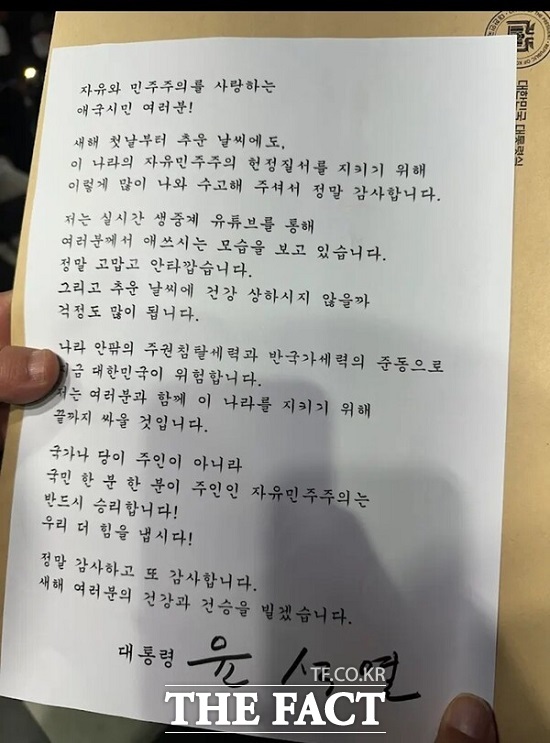 자유와 민주주의를 사랑하는
애국시민 여러분!
새해 첫날부터 추운 날씨에도,
이 나라의 자유민주주의 헌정질서를 지키기 위해
이렇게 많이 나와 수고해 주셔서 정말 감사합니다.
저는 실시간 생중계 유튜브를 통해
여러분께서 애쓰시는 모습을 보고 있습니다.
정말 고맙고 안타깝습니다.
그리고 추운 날씨에 건강 상하시지 않을까
걱정도 많이 됩니다.
나라 안팎의 주권침탈세력과 반국가세력의 준동으로
지금 대한민국이 위험합니다.
저는 여러분과 함께 이 나라를 지키기 위해
끝까지 싸울 것입니다.
국가나 당이 주인이 아니라
국민 한 분 한 분이 주인인 자유민주주의는
반드시 승리합니다!
우리 더 힘을 냅시다!
정말 감사하고 또 감사합니다.
새해 여러분의 건강과 건승을 빌겠습니다.
대통령 윤석열
대한민국 대통령실
TF.CO.KR
THE FACT